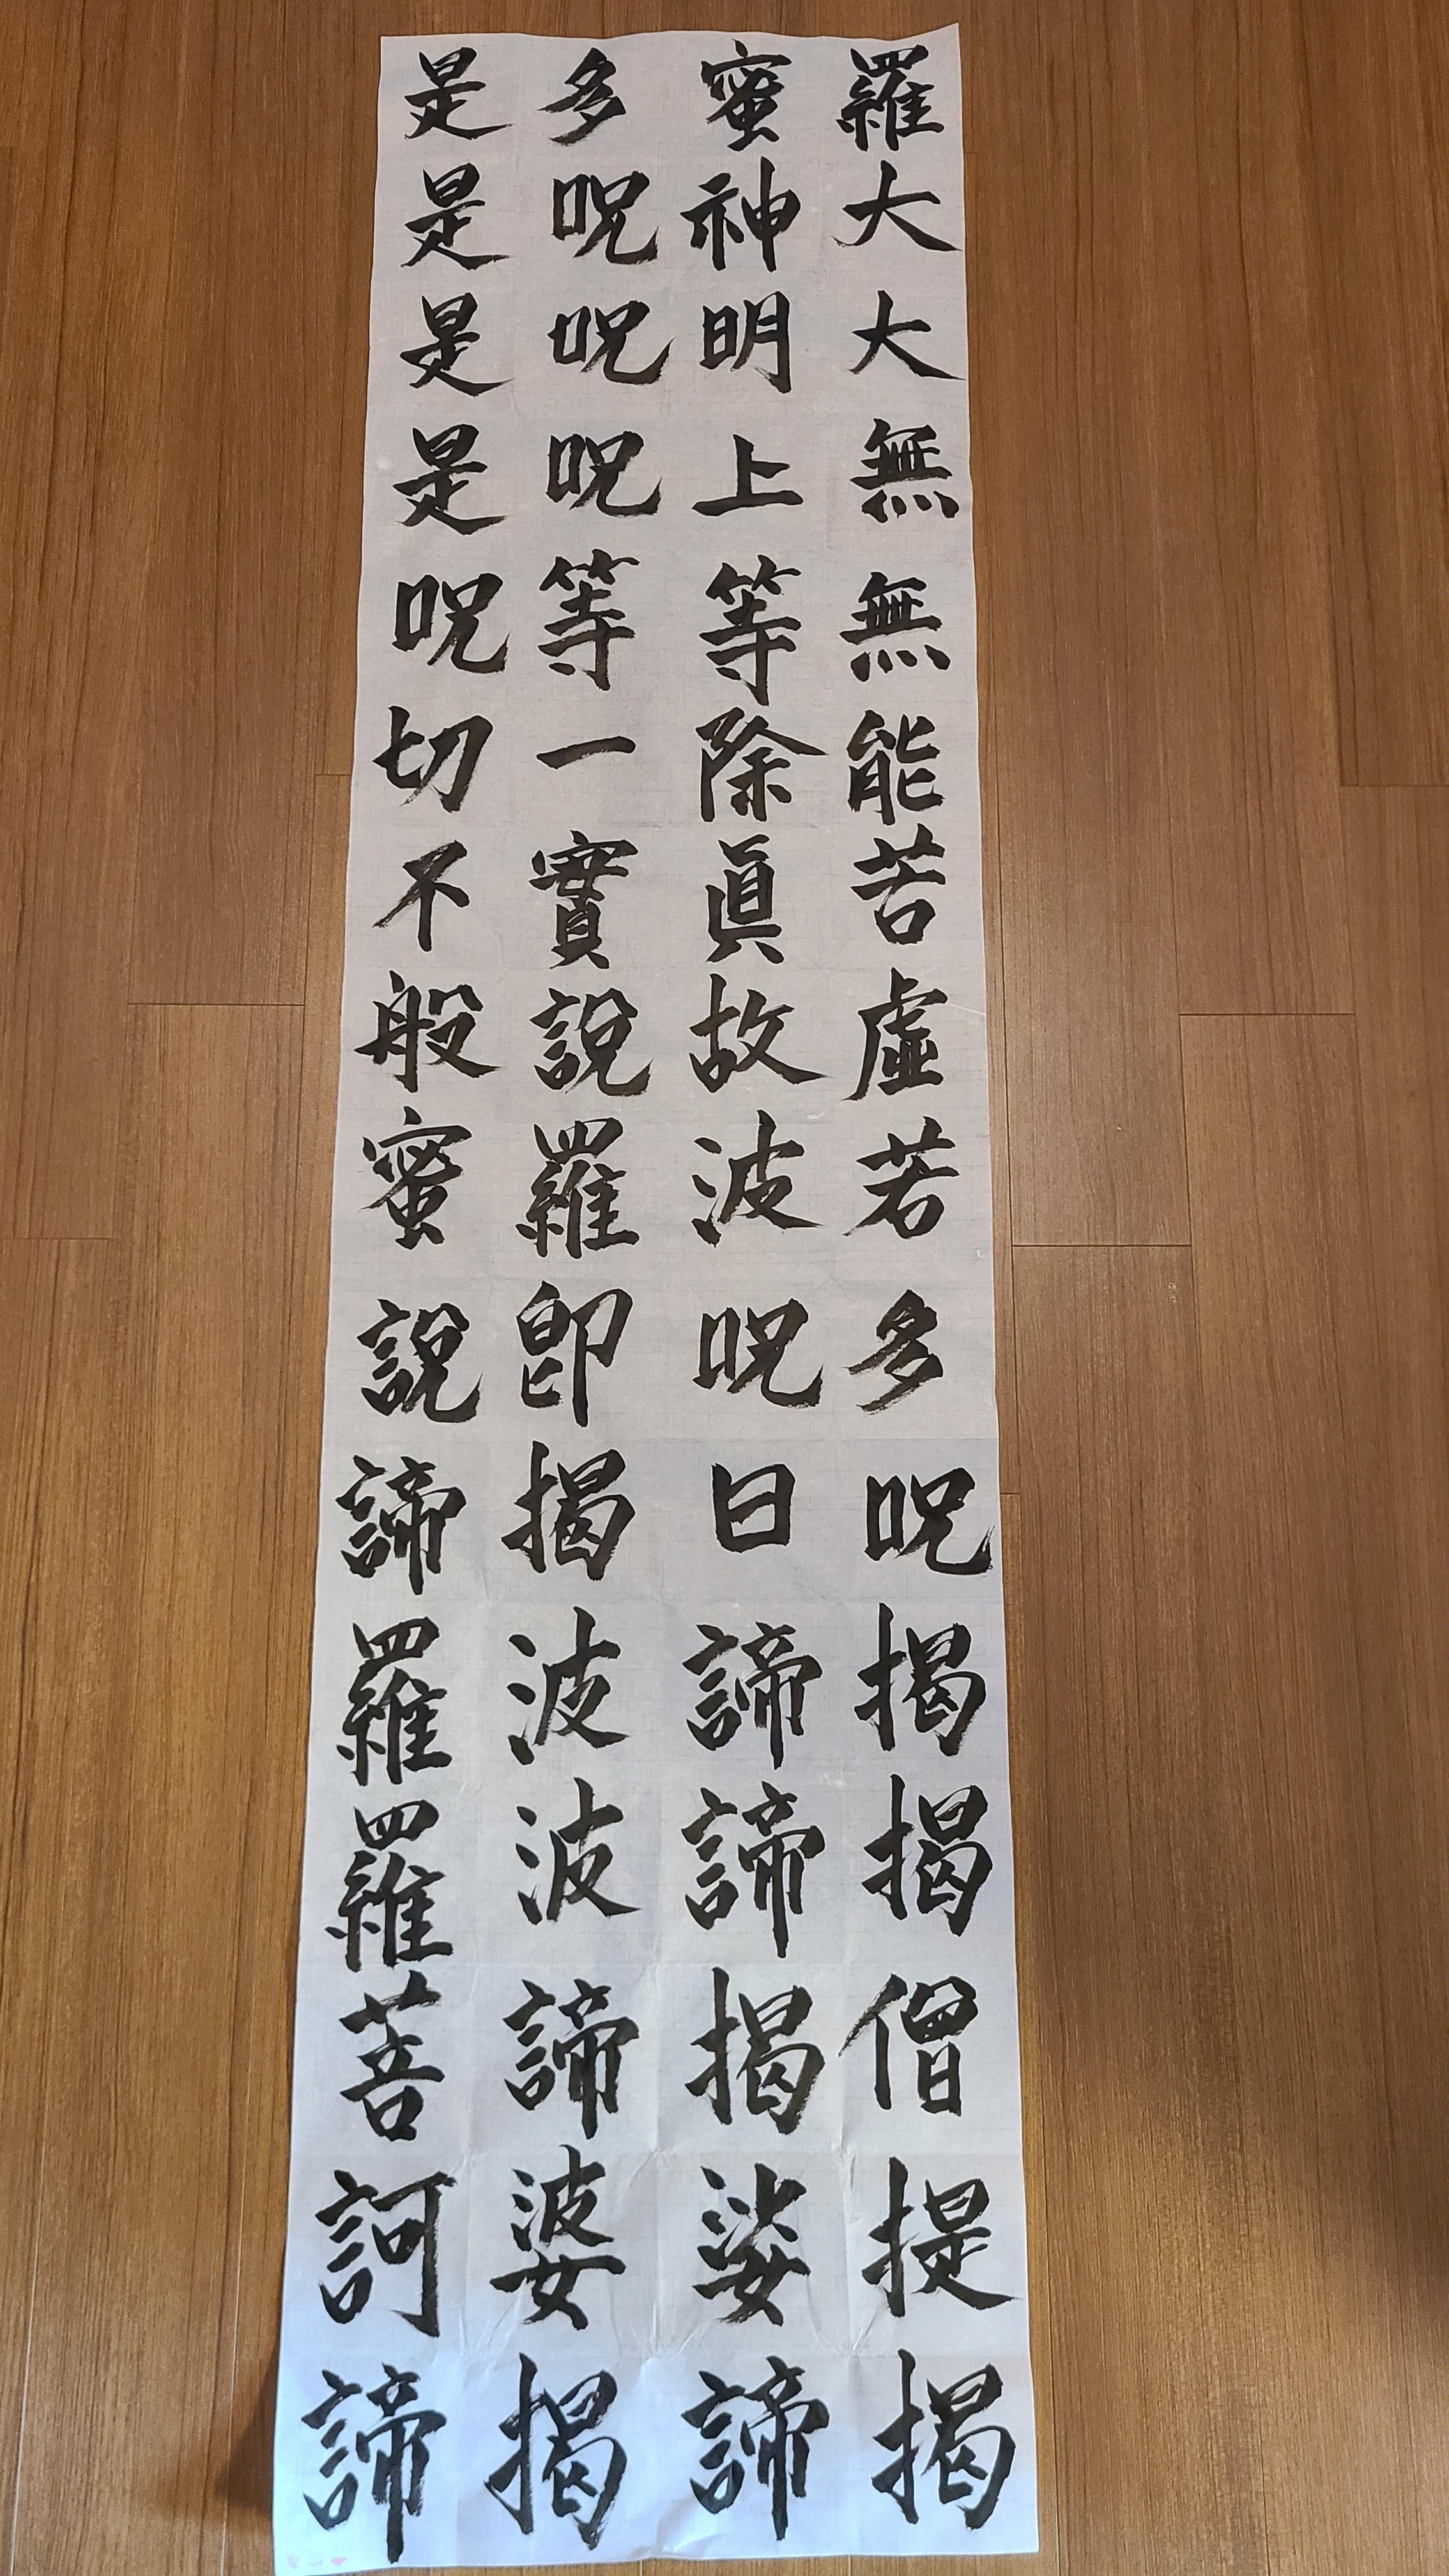 羅蜜多是
大神呪是
大明呪是
無上呪是
無等等呪
能除一切
苦眞實不
虛故說般
若波羅蜜
多呪卽說
呪曰揭諦
揭諦波羅
揭諦波羅
僧揭諦菩
提娑婆訶
揭諦揭諦